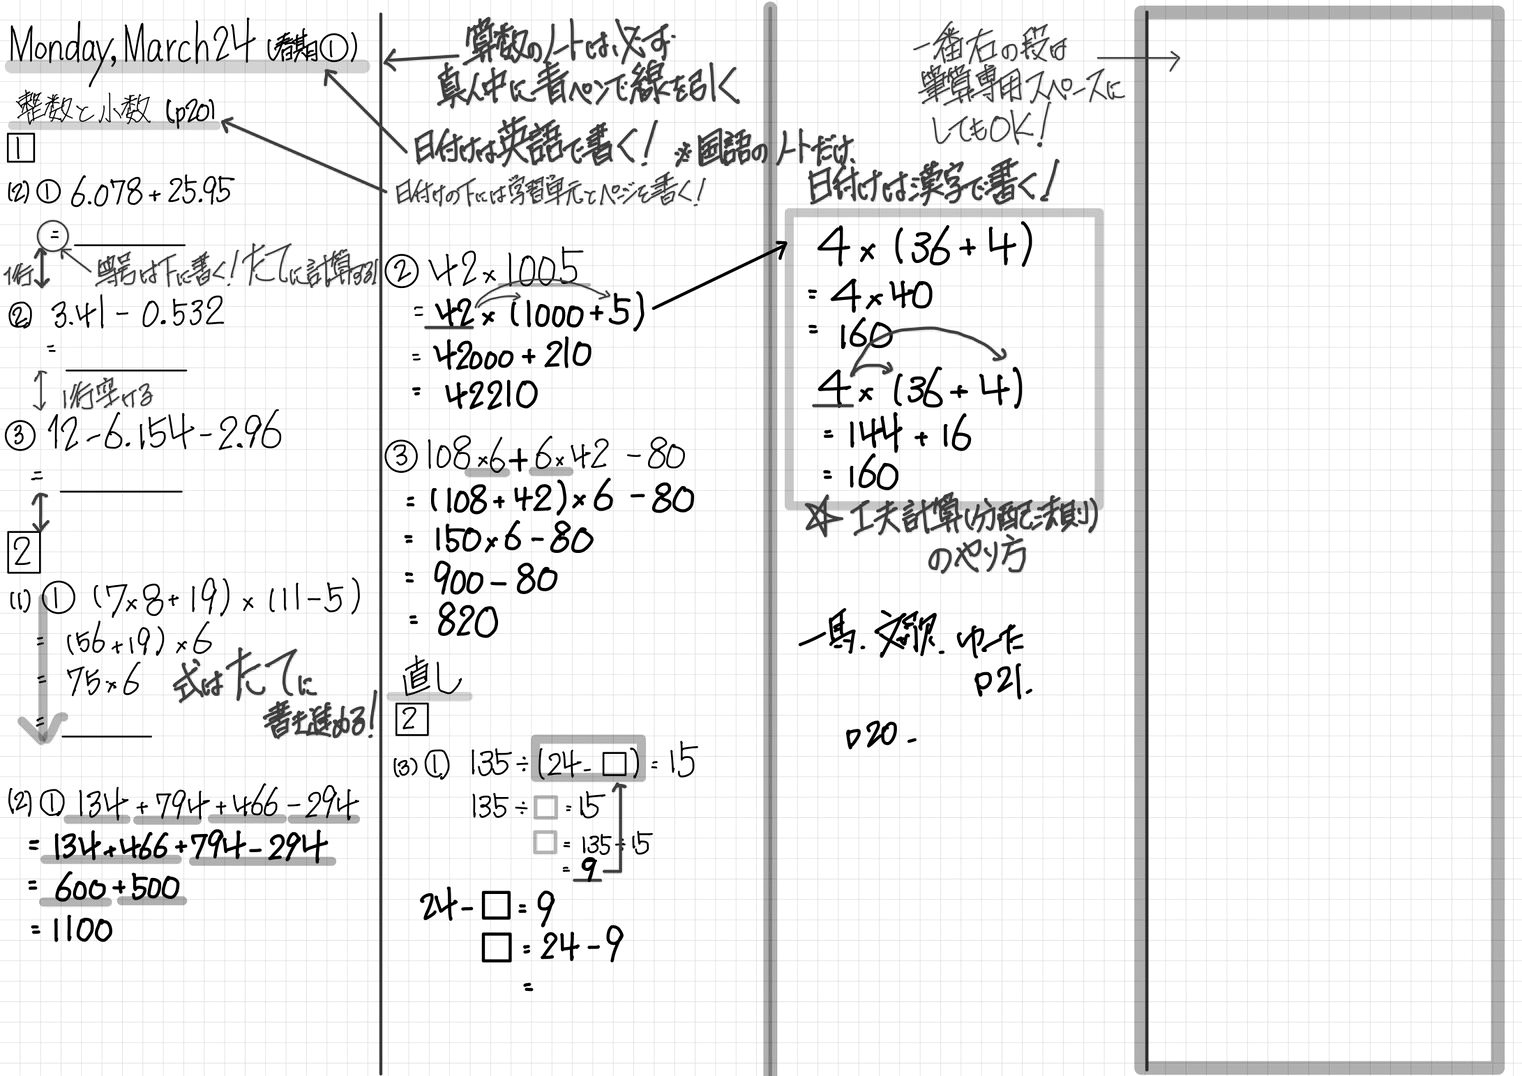 Monday, March 24 (春期①)
整数と小数 (p20)
1
(2) ① 6.078 + 25.95
=
1行
等号は下に書く！たてに計算する！
② 3.41 - 0.532
=
1行空ける
③ 12 - 6.154 - 2.96
=
2
(1) ① (7×8+19) × (11-5)
= (56+19) × 6
= 75×6
=
式はたてに
書き進める！
(2) ① 134 + 794 + 466 - 294
= 134 + 466 + 794 - 294
= 600 + 500
= 1100
算数のノートは、必ず
真ん中に青ペンで線を引く
日付けは英語で書く！ ※国語のノートだけ、
日付けは漢字で書く！
日付けの下には学習単元とページを書く！
② 42 × 1005
= 42 × (1000 + 5)
= 42000 + 210
= 42210
③ 108×6 + 6×42 - 80
= (108 + 42) × 6 - 80
= 150×6 - 80
= 900 - 80
= 820
直し
2
(3) ① 135 ÷ (24 - □) = 15
135 ÷ □ = 15
□ = 135÷15
= 9
24 - □ = 9
□ = 24 - 9
=
一番右の段は
筆算専用スペースに
してもOK！
4 × (36 + 4)
= 4 × 40
= 160
4 × (36 + 4)
= 144 + 16
= 160
☆ 工夫計算(分配法則)
のやり方
一馬. ゆーた
p21.
p20 -